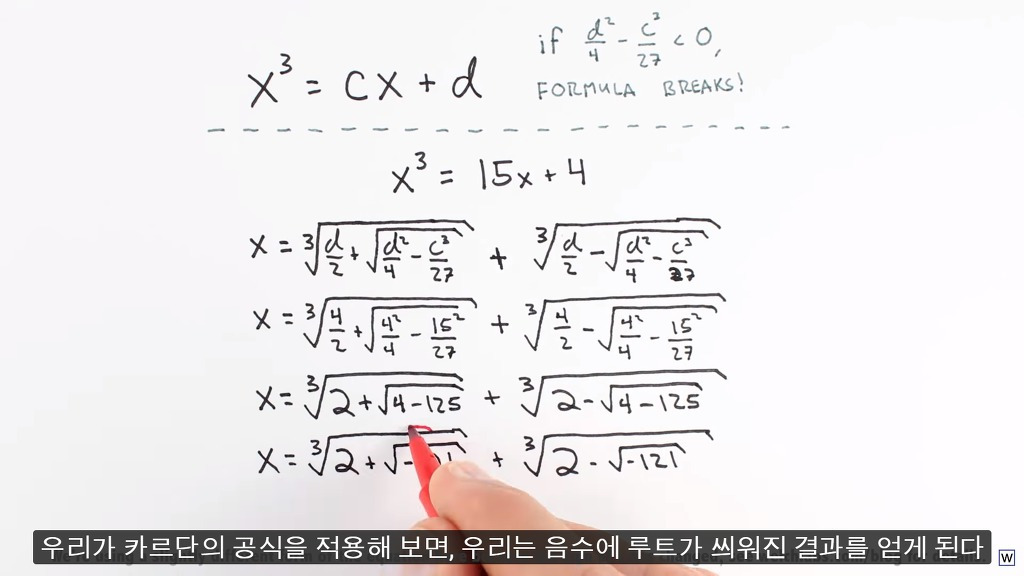 x³ = cx + d
if d²/4 - c³/27 < 0,
FORMULA BREAKS!
x³ = 15x + 4
x = ³√(d/2 + √(d²/4 - c³/27)) + ³√(d/2 - √(d²/4 - c³/27))
x = ³√(4/2 + √(4²/4 - 15²/27)) + ³√(4/2 - √(4²/4 - 15²/27))
x = ³√(2 + √(4 - 125)) + ³√(2 - √(4 - 125))
x = ³√(2 + √(-121)) + ³√(2 - √(-121))
우리가 카르단의 공식을 적용해 보면, 우리는 음수에 루트가 씌워진 결과를 얻게 된다
W